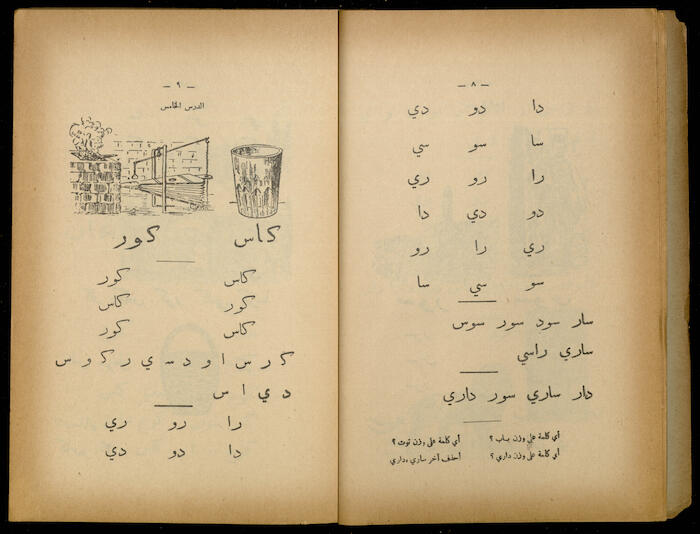 — ٨ —
دا دو دي
سا سو سي
را رو ري
دو دي دا
ري را رو
سو سي سا
سار سود سور سوس
ساري راسي
دار ساري سور داري
أي كلمة على وزن باب ؟ أي كلمة على وزن توت ؟
أي كلمة على وزن داري ؟ أحذف آخر ساري وداري
— ٩ —
الدرس الخامس
كاس كور
كاس كور
كور كاس
كاس كور
ك ر س ا و د س ي ر ك و س
د ي ا س
را رو ري
دا دو دي